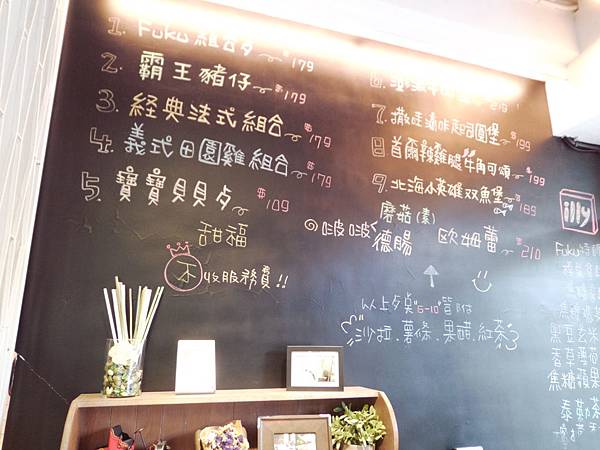 1. Fuku 組合夕 $179
2. 霸王豬仔 $179
3. 経典法式組合 $179
4. 義式田園雞組合 $179
5. 寶寶貝貝夕 $109
甜福
不收服務費!!
7. 撒哇 圓堡 $199
8. 首爾辣雞腿牛角可頌 $199
9. 北海小英雄双魚堡 $189
磨菇(素)
啵啵 德腸 歐姆蕾 $210
以上夕点"5-10"皆附
沙拉.薯條.果醋.紅茶
illy
Fuku特
黑豆玄米
香草薄荷
焦糖蘋果
泰勒茶